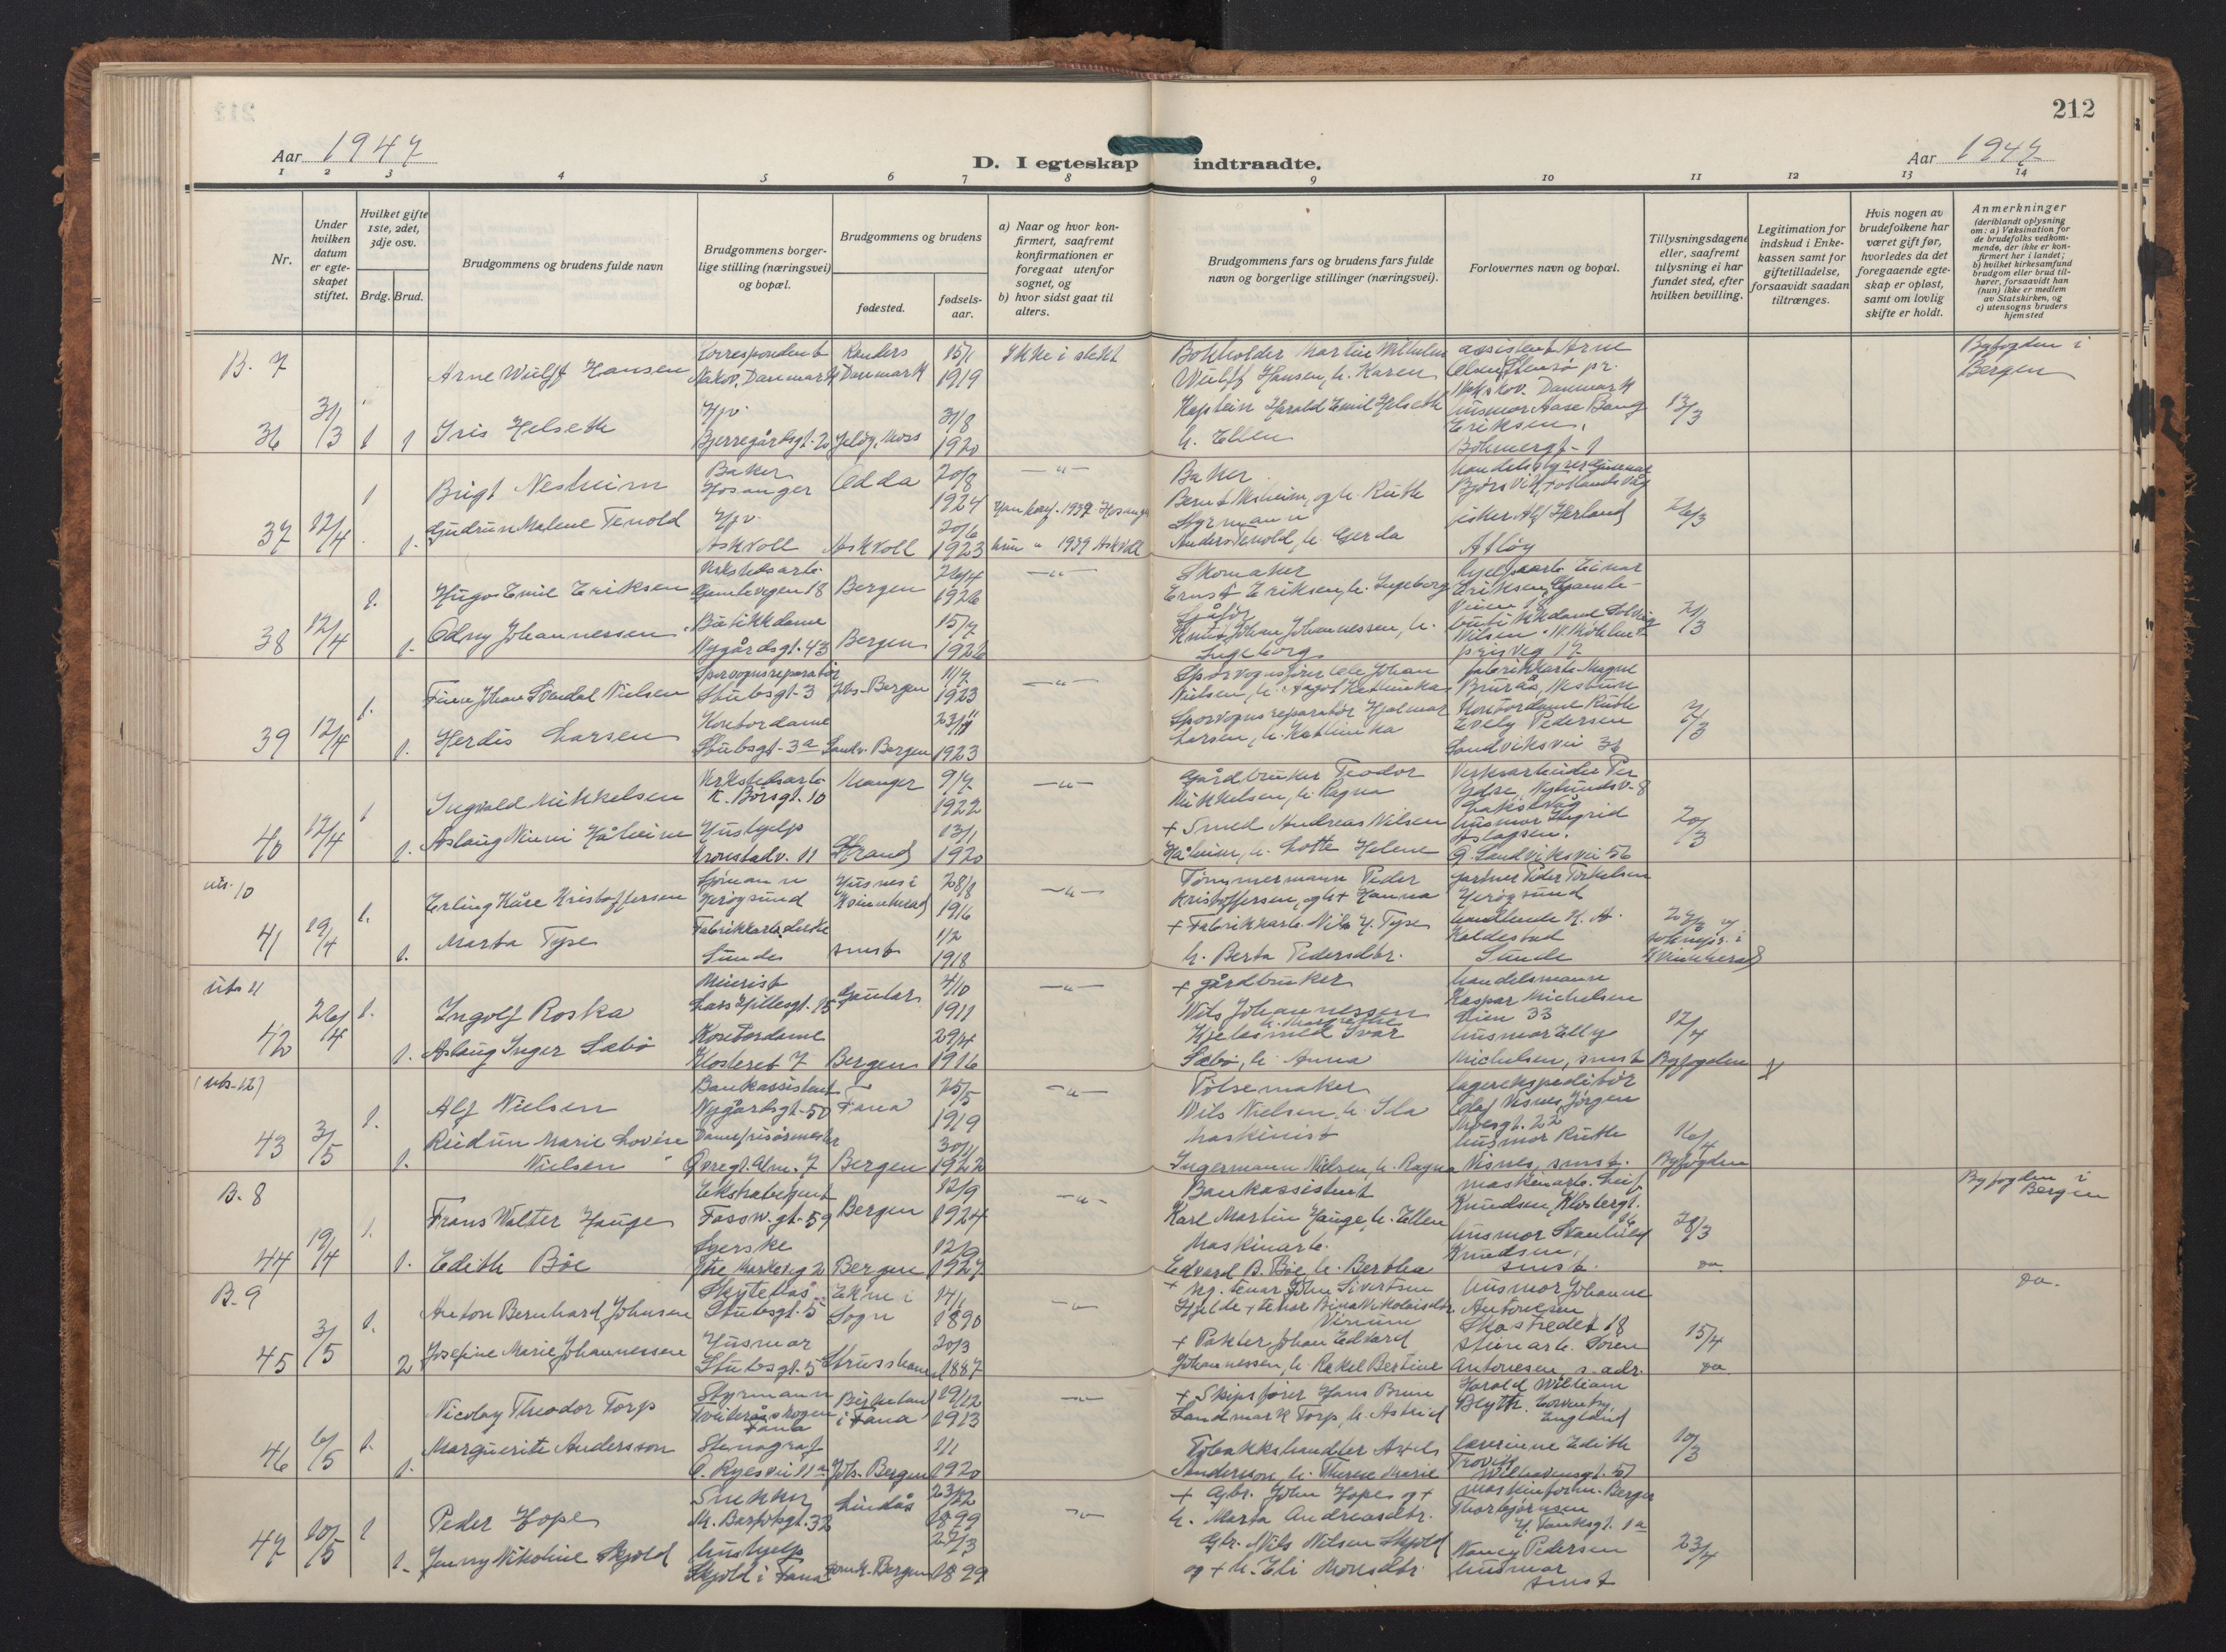 212
Aar 1947
D. I egteskap indtraadte.
Aar 1947
1 2 3 4 5 6 7 8 9 10 11 12 13 14
Nr.
Under hvilken datum er egteskapet stiftet.
Hvilket gifte 1ste, 2det, 3dje osv.
Brdg. Brud.
Brudgommens og brudens fulde navn
Brudgommens borgerlige stilling (næringsvei) og bopæl.
Brudgommens og brudens
fødested.
fødselsaar.
a) Naar og hvor konfirmert, saafremt konfirmationen er foregaat utenfor sognet, og
b) hvor sidst gaat til alters.
Brudgommens fars og brudens fars fulde navn og borgerlige stillinger (næringsvei).
Forlovernes navn og bopæl.
Tillysningsdagene eller, saafremt tillysning ei har fundet sted, efter hvilken bevilling.
Legitimation for indskud i Enkekassen samt for giftetilladelse, forsaavidt saadan tiltrænges.
Hvis nogen av brudefolkene har været gift før, hvorledes da det foregaaende egteskap er opløst, samt om lovlig skifte er holdt.
Anmerkninger
(deriblandt oplysning om: a) Vaksination for de brudefolks vedkommende, der ikke er konfirmert her i landet; b) hvilket kirkesamfund brudgom eller brud tilhører, forsaavidt han (hun) ikke er medlem av Statskirken, og c) utensogns bruders hjemsted
B. 7 Arne Wulff Hansen Korrespondent Nakov, Danmark Randers Danmark 15/1 1919 Ikke i slekt Bokholder Martin Wilhelm Wulff Hansen, h. Karen assistent Arne Olsen Nakskov. Danmark Byfogden i Bergen
36 1 1 Iris Helseth Hjv. Bjerregårdsgt. 20 Jeløy, Moss 31/8 1920 Kaptein Harald Emil Helseth h. Ellen husmor Aase Bang Eriksen, Bohmergt. 1 13/3
1 Brigt Nesheim Baker Hosanger Odda 20/8 1924 Han konf. 1939 Hosanger Baker Bernt Nesheim, og h. Ruth
37 12/4 1. Gudrun Malene Tenold Hjv. Askvoll Askvoll 20/6 1923 hun " 1939 Askvoll Styrmann Anders Tenold, h. Gerda fisker Alf Herland Atløy 26/3
1. Hugo Emil Eriksen Verkstedsarb. Gamlevegen 18 Bergen 26/4 1926 Skomaker Ernst Eriksen, h. Ingeborg hjelpearb. Einar Eriksen, Gamleveien 18
38 12/4 1. Odny Johannessen Butikkdame Nygårdsgt. 43 Bergen 15/7 1926 Sjåfør Knut Johan Johannessen, h. Ingeborg butikkdame Solveig Nilsen 21/3
1. Finn Johan Svendal Nielsen Sporvognsreparatør Stubsgt. 3 Joh. Bergen 11/7 1923 Sporvognsfører Ole Johan Nielsen, h. Aagot Kathinka fabrikkarb. Magne Brurås, Nesttun
39 12/4 1. Herdis Larsen Kontordame Stubsgt. 3a Sandv. Bergen 23/11 1923 Sporvognsreparatør Hjalmar Larsen, h. Kathinka Kontordame Ruth Evely Pedersen Sandviksvei 36 21/3
1 Ingvald Mikkelsen Verkstedsarb. K. Børsgt. 10 Manger 9/7 1922 Gårdbruker Teodor Mikkelsen, h. Ragna Verksarbeider Per Ydre, Nylundsv. 8 Laksevåg
40 12/4 1. Aslaug Minni Håheim Hushjelp Kronstadv. 11 Strand 13/1 1920 + Smed Andreas Nilsen Håheim, h. Lotte Helene husmor Sigrid Aslagsen. Ø. Sandviksvei 56 20/3
uts. 10 1. Erling Kåre Kristoffersen Sjømann Herøysund Husnes i Kvinnherad 28/8 1916 Tømmermann Peder Kristoffersen, og h + Hanna gartner Peder Torkelsen Herøysund
41 19/4 1. Marta Type Fabrikkarbeiderske Sunde smst 1/2 1918 + Fabrikkarb. Nils H. Type h. Berta Pedersdtr. handlende K. A. Koldestad Sunde Kvinnherad
uts 11 1. Ingolf Roska Murist Lars Hillesgt. 15 Gaular 4/10 1911 + gårdbruker Nils Johannessen h. Margrethe handelsmann Kaspar Michelsen Vien 33
42 26/4 1. Aslaug Inger Sæbø Kontordame Klosteret 7 Bergen 29/4 1916 Kjelesmed Ivar Sæbø, h. Anna husmor Elly Michelsen, smst 12/4 Byfogden
(uts. 12) 1. Alf Nielsen Bankassistent Nygårdsgt. 50 Fana 25/5 1919 Pølsemaker Nils Nielsen, h. Ida lagerekspeditør Olaf Visnes, Jørgen Moesgt. 22
43 3/5 1. Reidun Marie Lovise Nielsen Damefrisørmester Øvregt. Alm. 7 Bergen 30/11 1922 Maskinist Ingermann Nielsen, h. Ragna husmor Ruth Visnes, smst. 16/4 Byfogden
B. 8 1. Frans Walter Hauge Ekstrabetjent Fossw. gt. 59 Bergen 12/9 1924 Bankassistent Karl Martin Hauge, h. Ellen maskinarb. Leif Knudsen, Klostergt. Byfogden i Bergen
44 19/4 1. Edith Bøe Syerske Ytre Markevg 2 Bergen 12/9 1927 Maskinarb. Edvard B. Bøe, h. Bertha husmor Svanhild Knudsen, smst. 28/3 do.
B. 9 1. Anton Bernhard Johnsen Skytebås Stubsgt. 5 Sogn 14/1 1890 do.
45 3/5 2 Josefine Marie Johannessen Husmor Stubsgt. 5 Strusshamn 20/3 1887 + Pakter Johan Edvard Johannessen, h. Rakel Bertine husmor Johanne Antonesen Skostredet 18 stuearb. Søren Antonesen, s. adr. 15/4 do
Nicolay Theodor Torp Styrmann Tveiteråsskogen Fana Birkeland i Fana 19/12 1913 + Skipsfører Hans Brun Landmark Torp, h. Astrid Harold William Blyth, Coventry, England
46 6/5 1. 1. Marguerite Andersson Stenograf O. Ryesvei 11a Joh. Bergen 1/1 1920 Tobakkshandler Axel Anderson, h. Therese Marie lærerinne Edith Trovik Wilhadensgt. 57 10/3
Peder Hope Snekker M. Barfotsgt. 32 Lindås 23/12 1899 + Gbr. John Hopes og + h. Marta Andreasdtr. maskinform. Berger Thorbjørnsen H. Tanksgt. 1a
47 10/5 1 1. Jenny Nikoline Skjold hushjelp Skjold i Fana Bergen 27/3 1899 Gbr. Nils Nilsen Skjold og + h. Eli Monsdtr. Nancy Pedersen husmor smst 23/4